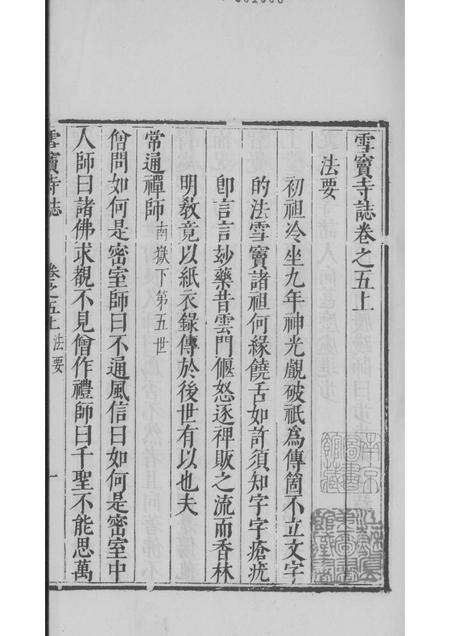 雪竇寺誌卷之五上
法要
初祖冷坐九年神光覷破祇為傳箇不立文字
的法雪竇諸祖何緣饒舌如許須知字字瘡疣
卽言言妙藥昔雲門偃怒逐裨販之流而香林
明教竟以紙衣錄傳於後世有以也夫
常通禪師南嶽下第五世
僧問如何是密室師曰不通風信曰如何是密室中
人師曰諸佛求覩不見僧作禮師曰千聖不能思萬
雪竇寺誌 卷之五上 法要 一